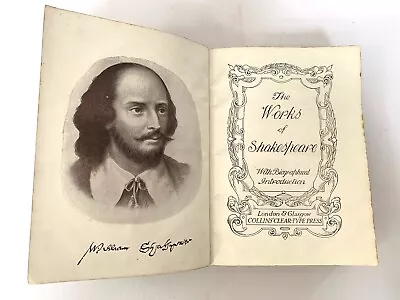 William Shakspeare
The
Works
of
Shakespeare
With Biographical
Introduction
London & Glasgow
COLLINS' CLEAR-TYPE PRESS